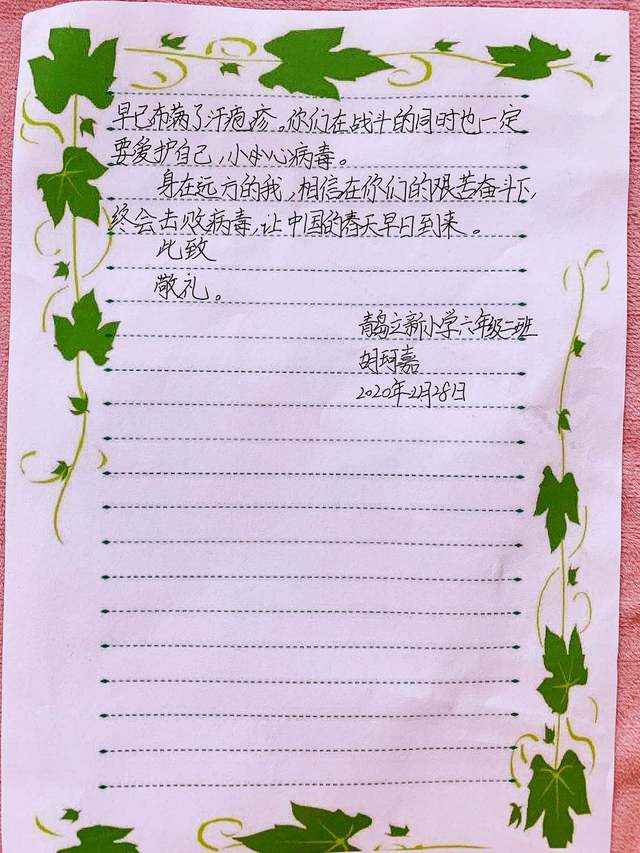 早已布满了汗疱疹。你们在战斗的同时也一定
要爱护自己，小心病毒。
身在远方的我，相信在你们的艰苦奋斗下，
终会击败病毒，让中国的春天早日到来。
此致
敬礼。
青岛立新小学六年级二班
胡珂嘉
2020年2月28日